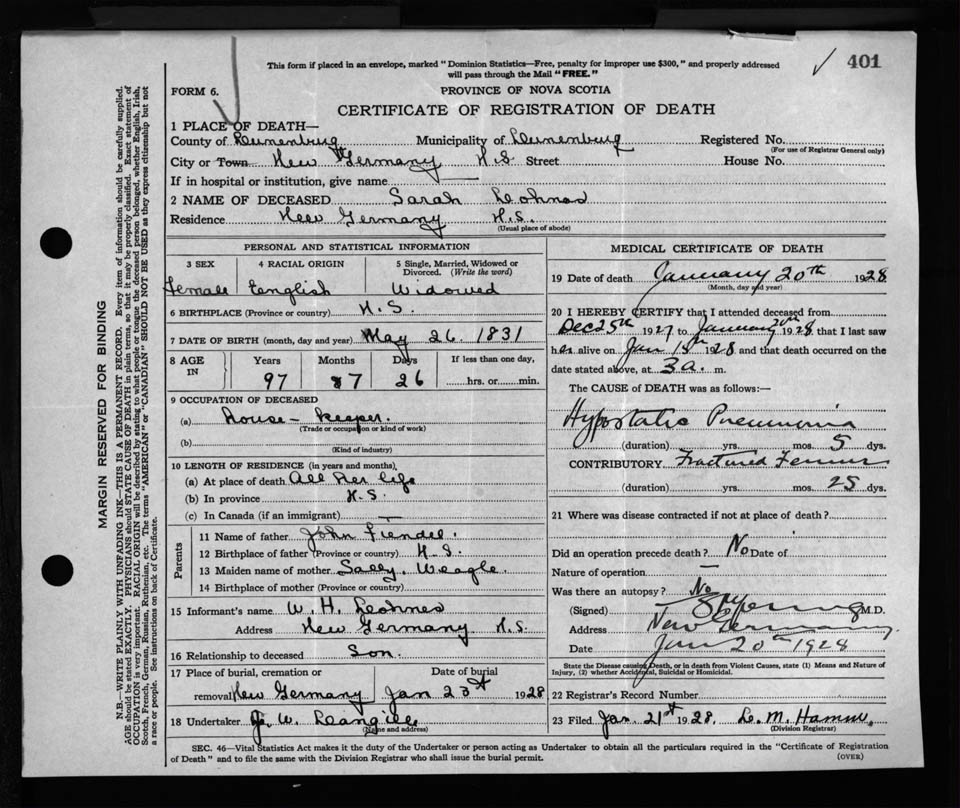 This form if placed in an envelope, marked "Dominion Statistics—Free, penalty for improper use $300," and properly addressed
will pass through the Mail "FREE."
401
FORM 6.
PROVINCE OF NOVA SCOTIA
CERTIFICATE OF REGISTRATION OF DEATH
1 PLACE OF DEATH—
County of Lunenburg Municipality of Lunenburg Registered No.
(For use of Registrar General only)
City or Town New Germany N.S Street House No.
If in hospital or institution, give name —
2 NAME OF DECEASED Sarah Lohnes
Residence New Germany N.S.
(Usual place of abode)
PERSONAL AND STATISTICAL INFORMATION
3 SEX 4 RACIAL ORIGIN 5 Single, Married, Widowed or
Divorced. (Write the word)
Female English Widowed
6 BIRTHPLACE (Province or country) N.S.
7 DATE OF BIRTH (month, day and year) May 26. 1831
8 AGE IN Years Months Days If less than one day,
97 7 26 hrs. or min.
9 OCCUPATION OF DECEASED
(a) house-keeper.
(Trade or occupation or kind of work)
(b)
(Kind of industry)
10 LENGTH OF RESIDENCE (in years and months)
(a) At place of death All Her life
(b) In province N.S.
(c) In Canada (if an immigrant) —
Parents
11 Name of father John
12 Birthplace of father (Province or country) N.S.
13 Maiden name of mother Sally. Weagle.
14 Birthplace of mother (Province or country)
15 Informant's name W. H. Lohnes
Address New Germany N.S.
16 Relationship to deceased Son.
17 Place of burial, cremation or Date of burial
removal New Germany Jan 23 1928
18 Undertaker W.
(Name and address)
MEDICAL CERTIFICATE OF DEATH
19 Date of death January 20th 1928
(Month, day and year)
20 I HEREBY CERTIFY that I attended deceased from
Dec 25th 1927 to January 20th 1928 that I last saw
her alive on Jan 15th 1928 and that death occurred on the
date stated above, at 3 a. m.
The CAUSE of DEATH was as follows:—
Hypostatic Pneumonia
(duration) yrs. mos. 5 dys.
CONTRIBUTORY Fractured Femur
(duration) yrs. mos. 25 dys.
21 Where was disease contracted if not at place of death?
Did an operation precede death? No Date of
Nature of operation —
Was there an autopsy? No
(Signed) M.D.
Address New Germany.
Date Jan 20th 1928
State the Disease causing Death, or in death from Violent Causes, state (1) Means and Nature of
Injury, (2) whether Accidental, Suicidal or Homicidal.
22 Registrar's Record Number
23 Filed Jan. 21st 1928. L. M. Hamm.
(Division Registrar)
SEC. 46—Vital Statistics Act makes it the duty of the Undertaker or person acting as Undertaker to obtain all the particulars required in the "Certificate of Registration
of Death" and to file the same with the Division Registrar who shall issue the burial permit.
(OVER)
MARGIN RESERVED FOR BINDING
N.B.—WRITE PLAINLY WITH UNFADING INK—THIS IS A PERMANENT RECORD. Every item of information should be carefully supplied.
AGE should be stated EXACTLY. PHYSICIANS should STATE CAUSE OF DEATH in plain terms, so that it may be properly classified. Exact statement of
OCCUPATION is very important. RACIAL ORIGIN will be described by stating to what people or tongue the deceased person belonged, whether English, Irish,
Scotch, French, German, Russian, Ruthenian, etc. The terms "AMERICAN" or "CANADIAN" SHOULD NOT BE USED as they express citizenship but not
a race or people. See instructions on back of Certificate.